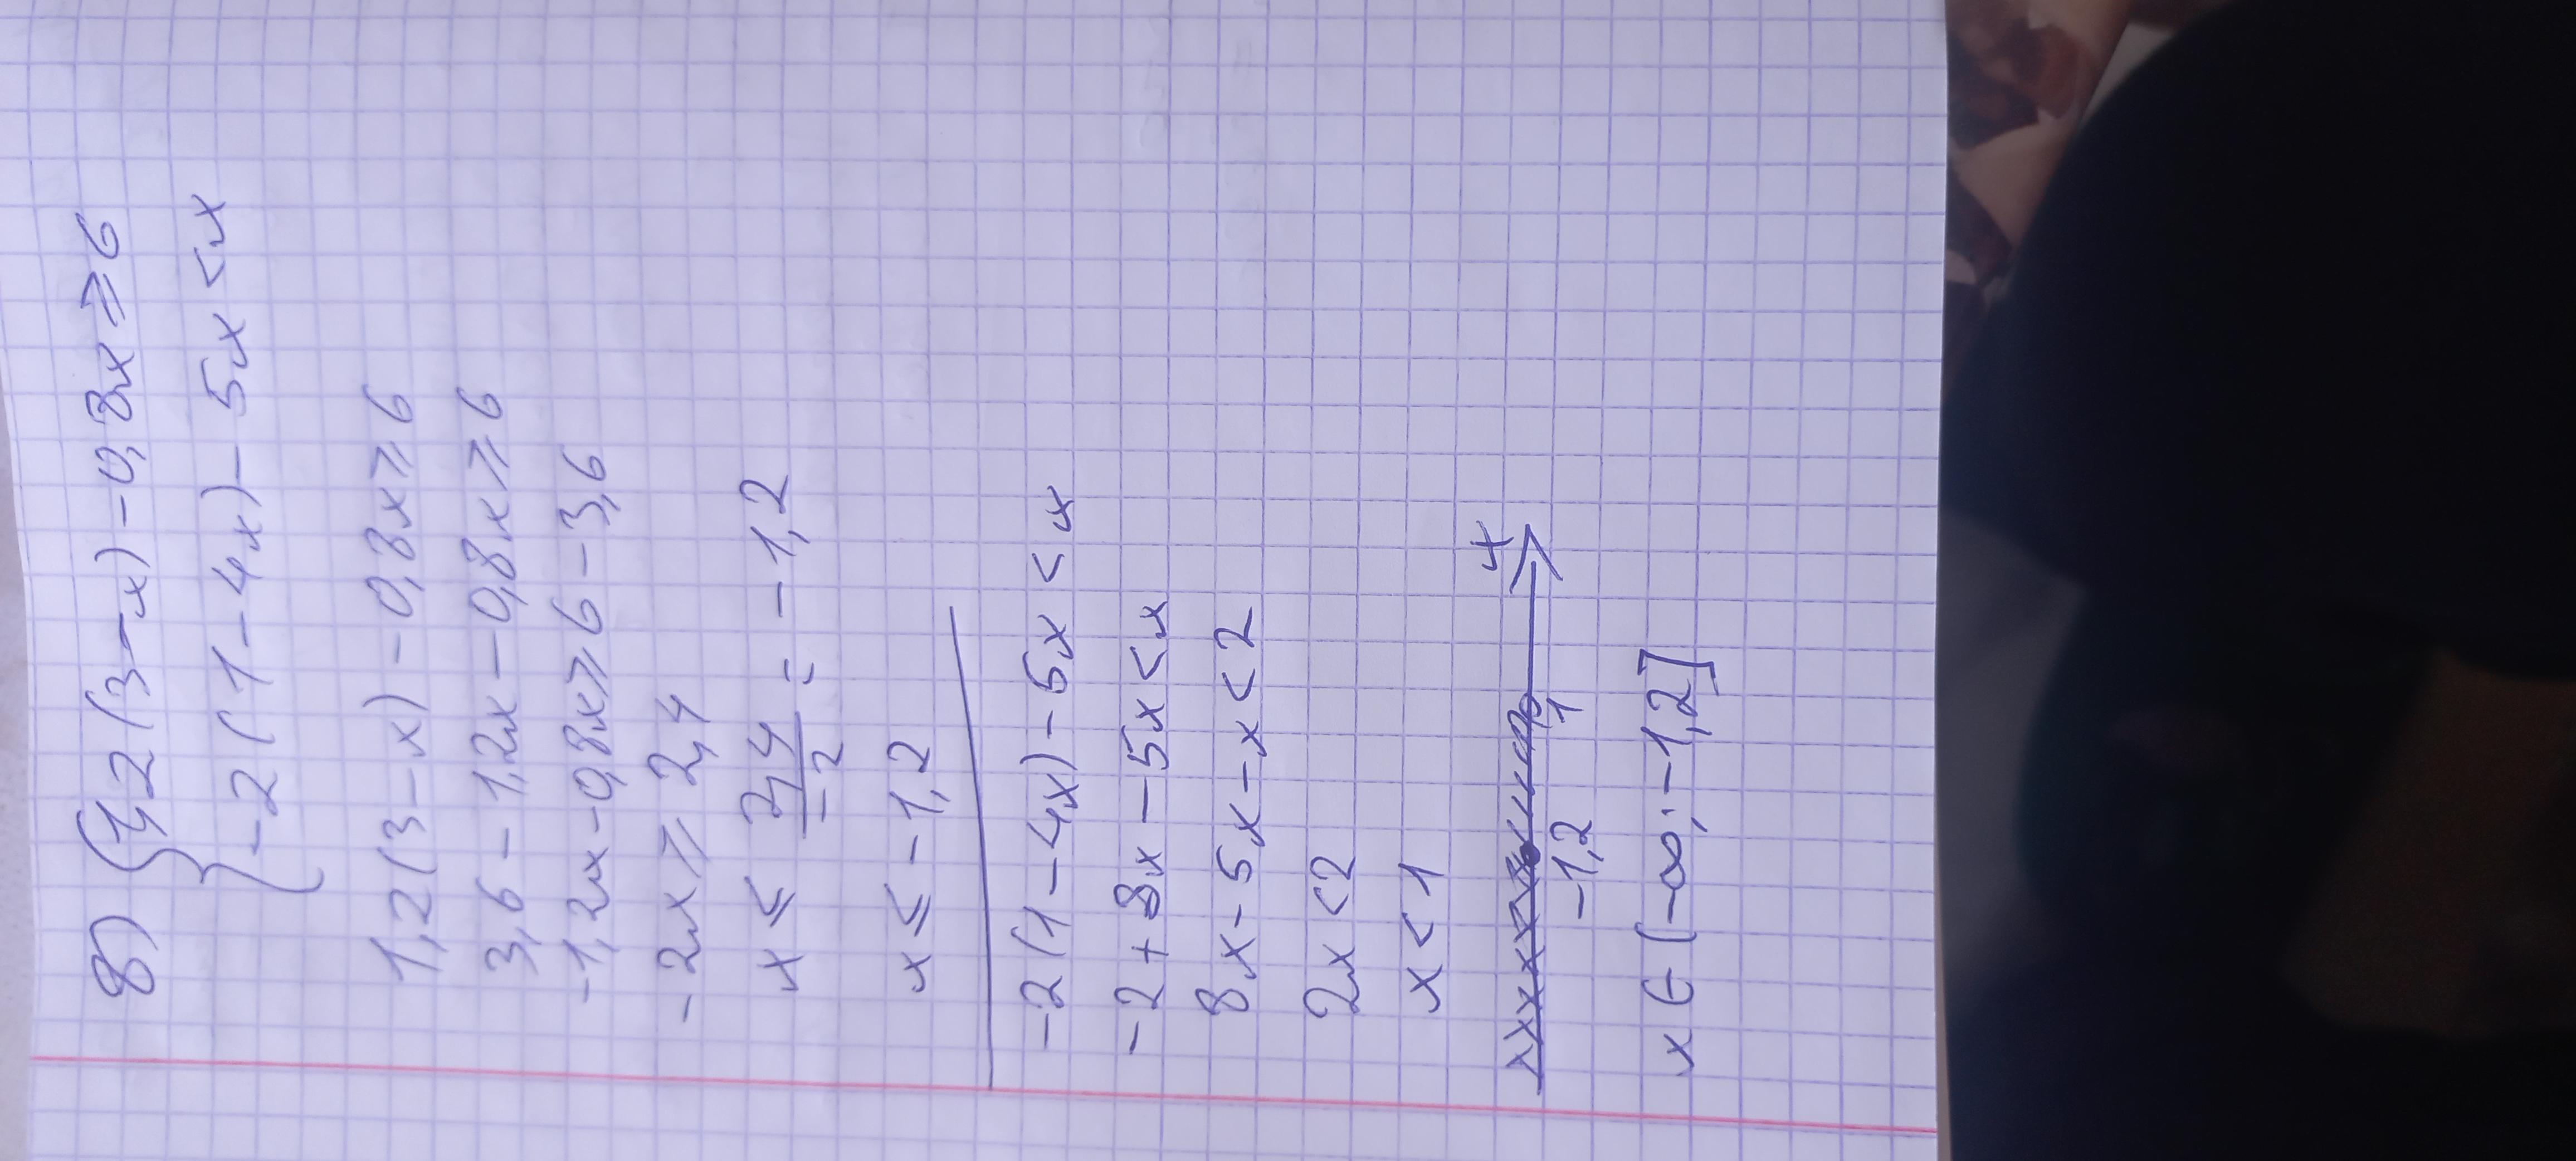 8) { 1,2(3-x)-0,8x⩾6
-2(1-4x)-5x<x
1,2(3-x)-0,8x⩾6
3,6-1,2x-0,8x⩾6
-1,2x-0,8x⩾6-3,6
-2x⩾2,4
x⩽2,4/-2=-1,2
x⩽-1,2
-2(1-4x)-5x<x
-2+8x-5x<x
8x-5x-x<2
2x<2
x<1
x
-1,2 1
x∈(-∞;-1,2]